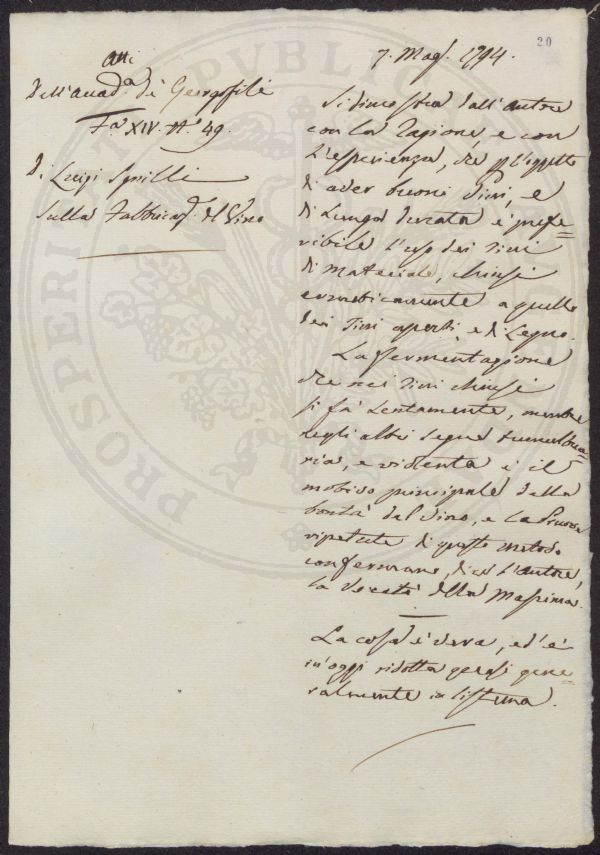 20
7. Mag. 1794.
Atti
Dell'Accad.a de Georgofili
Fa XIV. N.o 49.
Di Luigi
Sulla Fabbricaz. del Vino
Si dimostra dall'autore
con la ragione, e con
l'esperienza, che p l'oggetto
di aver buoni Vini, e
di lunga durata è prefe=
ribile l'uso dei Tini
di materiale, chiusi
ermeticamente a quello
dei Tini aperti e di Legno.
La fermentazione
che nei Tini chiusi
si fà lentamente, mentre
negli altri segue tumultua=
ria, e violenta è il
motivo principale della
bontà del Vino, e le Prove
ripetute di questo metodo
confermano, dice l'autore,
la verità della Massima.
La cosa è vera, ed è
in oggi ridotta quasi gene=
ralmente in sistema.
PROSPERITÀ PUBBLICA